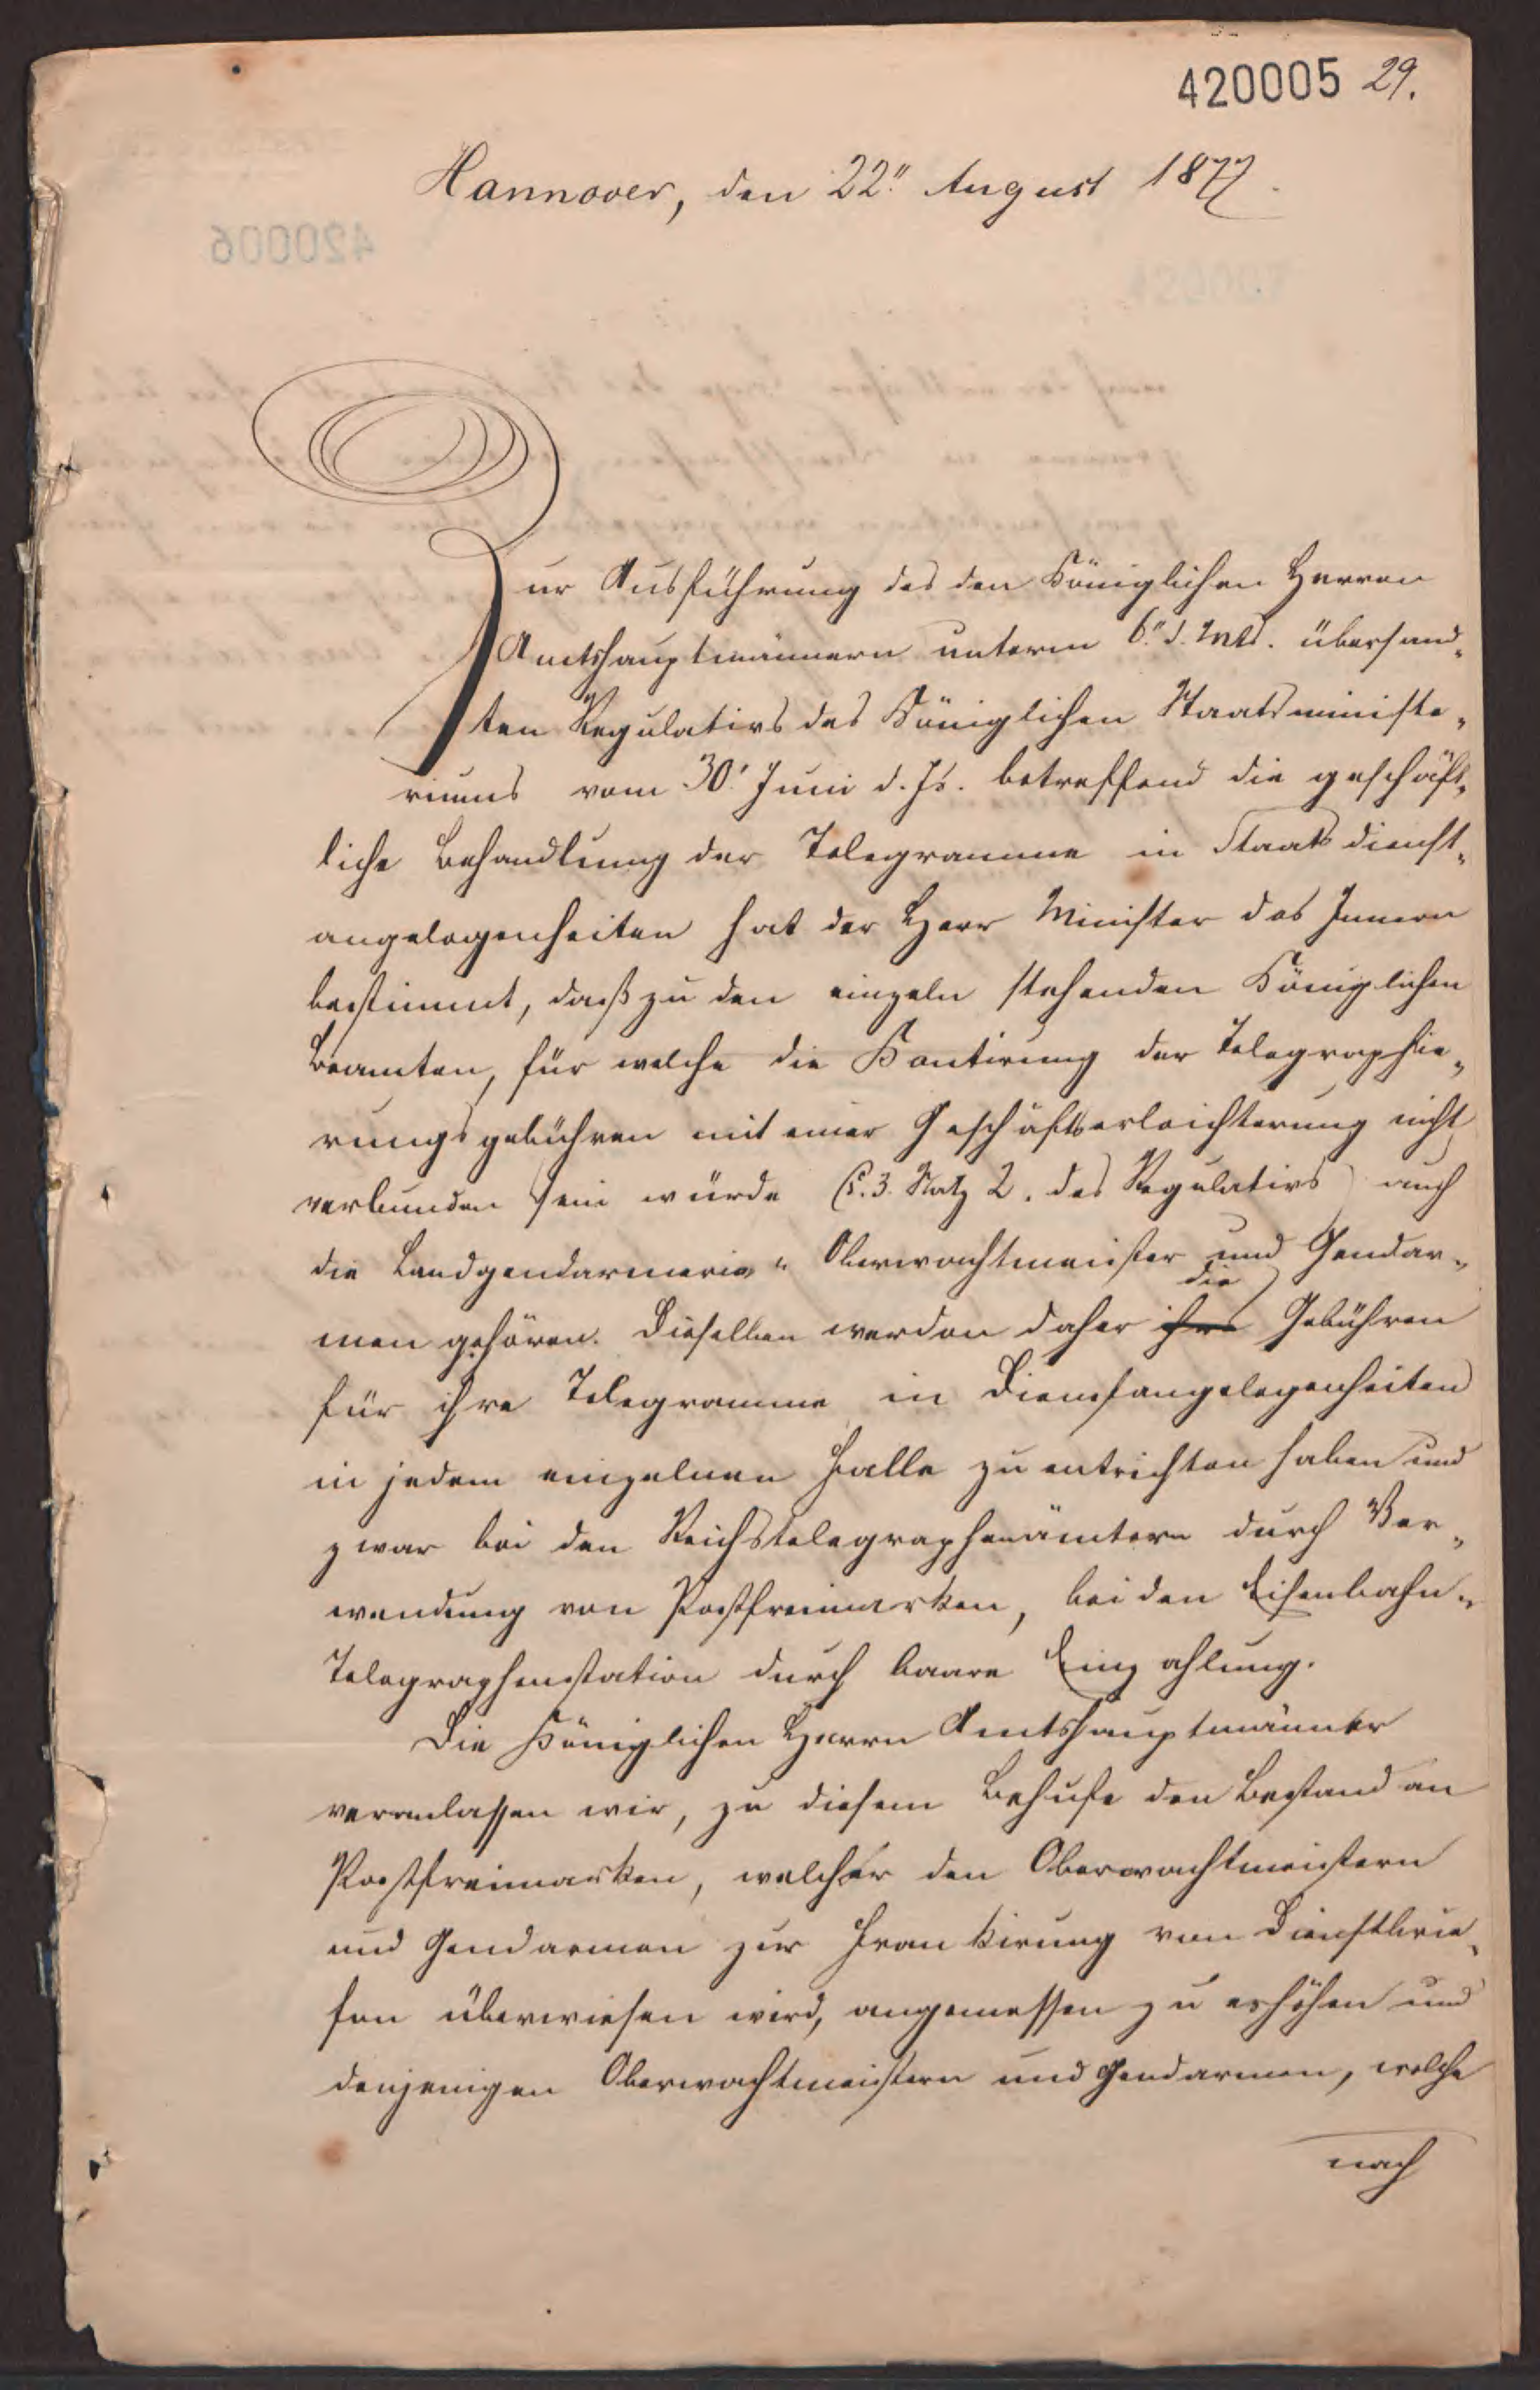 420005 29.
Hannover, den 22ten August 1877.
Zur Ausführung des den Königlichen Herren
Amtshauptmännern unterm 6ten d. Mts. übersand-
ten Regulativs des Königlichen Staatsministe-
riums vom 30t Juni d. Js. betreffend die geschäft-
liche Behandlung der Telegramme in Staatsdienst-
angelegenheiten hat der Herr Minister des Innern
bestimmt, daß zu den einzeln stehenden Königlichen
Beamten, für welche die Kontirung der Telegraphie-
rungsgebühren mit einer Geschäftserleichterung nicht
verbunden sein würde (§. 3. Satz 2. des Regulativs) auch
die Landgendarmerie-Oberwachtmeister und Gendar-
men gehören. Dieselben werden daher ihre die Gebühren
für ihre Telegramme in Dienstangelegenheiten
in jedem einzelnen Falle zu entrichten haben und
zwar bei den Reichstelegraphenämtern durch Ver-
wendung von Postfreimarken, bei den Eisenbahn-
Telegraphenstation durch baare Einzahlung.
Die Königlichen Herrn Amtshauptmänner
veranlassen wir, zu diesem Behufe den Bestand an
Postfreimarken, welcher den Oberwachtmeistern
und Gendarmen zur Frankirung von Dienstbrie-
fen überwiesen wird, angemessen zu erhöhen und
denjenigen Oberwachtmeistern und Gendarmen, welche
nach
420006